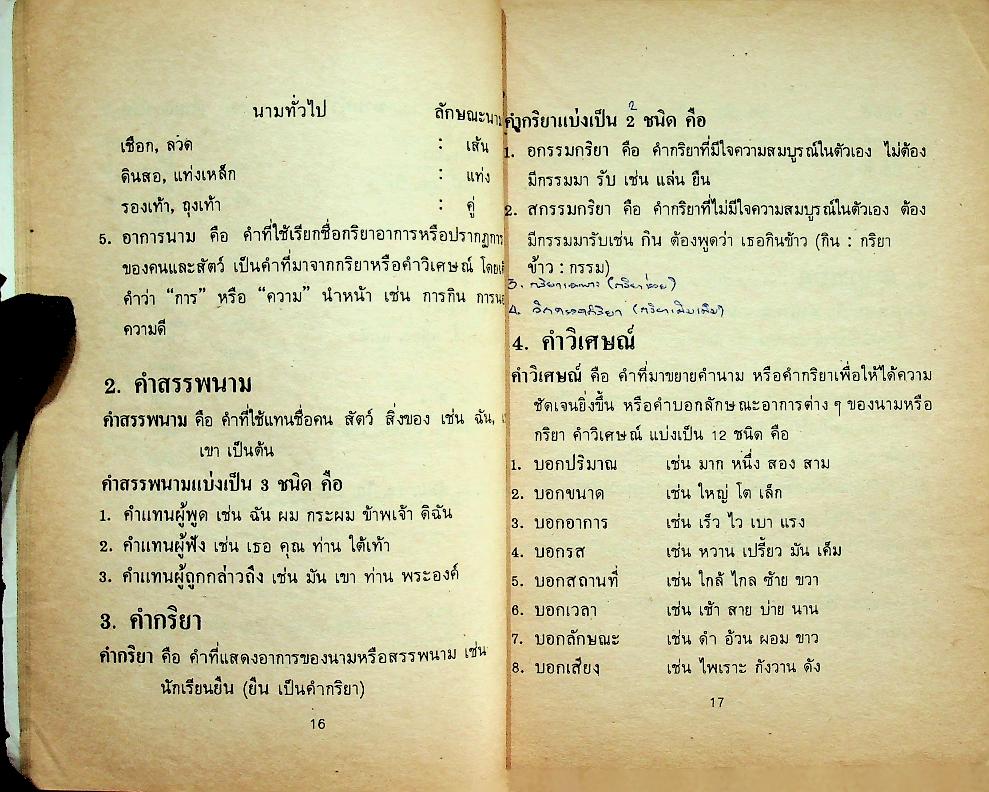 นามทั่วไป ลักษณะนาม
เชือก, ลวด : เส้น
ดินสอ, แท่งเหล็ก : แท่ง
รองเท้า, ถุงเท้า : คู่
5. อาการนาม คือ คำที่ใช้เรียกชื่อกริยาอาการหรือปรากฏการ
ของคนและสัตว์ เป็นคำที่มาจากกริยาหรือคำวิเศษณ์
คำว่า "การ" หรือ "ความ" นำหน้า เช่น การกิน
ความดี
2. คำสรรพนาม
คำสรรพนาม คือ คำที่ใช้แทนชื่อคน สัตว์ สิ่งของ เช่น ฉัน,
เขา เป็นต้น
คำสรรพนามแบ่งเป็น 3 ชนิด คือ
1. คำแทนผู้พูด เช่น ฉัน ผม กระผม ข้าพเจ้า ดิฉัน
2. คำแทนผู้ฟัง เช่น เธอ คุณ ท่าน ใต้เท้า
3. คำแทนผู้ถูกกล่าวถึง เช่น มัน เขา ท่าน พระองค์
3. คำกริยา
คำกริยา คือ คำที่แสดงอาการของนามหรือสรรพนาม เช่น
นักเรียนยืน (ยืน เป็นคำกริยา)
16
2
คำกริยาแบ่งเป็น 2 ชนิด คือ
1. อกรรมกริยา คือ คำกริยาที่มีใจความสมบูรณ์ในตัวเอง ไม่ต้อง
มีกรรมมา รับ เช่น แล่น ยืน
2. สกรรมกริยา คือ คำกริยาที่ไม่มีใจความสมบูรณ์ในตัวเอง ต้อง
มีกรรมมารับเช่น กิน ต้องพูดว่า เธอกินข้าว (กิน : กริยา
ข้าว : กรรม)
3. (กริยาช่วย)
4. (กริยาเติมเต็ม)
4. คำวิเศษณ์
คำวิเศษณ์ คือ คำที่มาขยายคำนาม หรือคำกริยาเพื่อให้ได้ความ
ชัดเจนยิ่งขึ้น หรือคำบอกลักษณะอาการต่าง ๆ ของนามหรือ
กริยา คำวิเศษณ์ แบ่งเป็น 12 ชนิด คือ
1. บอกปริมาณ เช่น มาก หนึ่ง สอง สาม
2. บอกขนาด เช่น ใหญ่ โต เล็ก
3. บอกอาการ เช่น เร็ว ไว เบา แรง
4. บอกรส เช่น หวาน เปรี้ยว มัน เค็ม
5. บอกสถานที่ เช่น ใกล้ ไกล ซ้าย ขวา
6. บอกเวลา เช่น เช้า สาย บ่าย นาน
7. บอกลักษณะ เช่น ดำ อ้วน ผอม ขาว
8. บอกเสียง เช่น ไพเราะ กังวาน ดัง
17